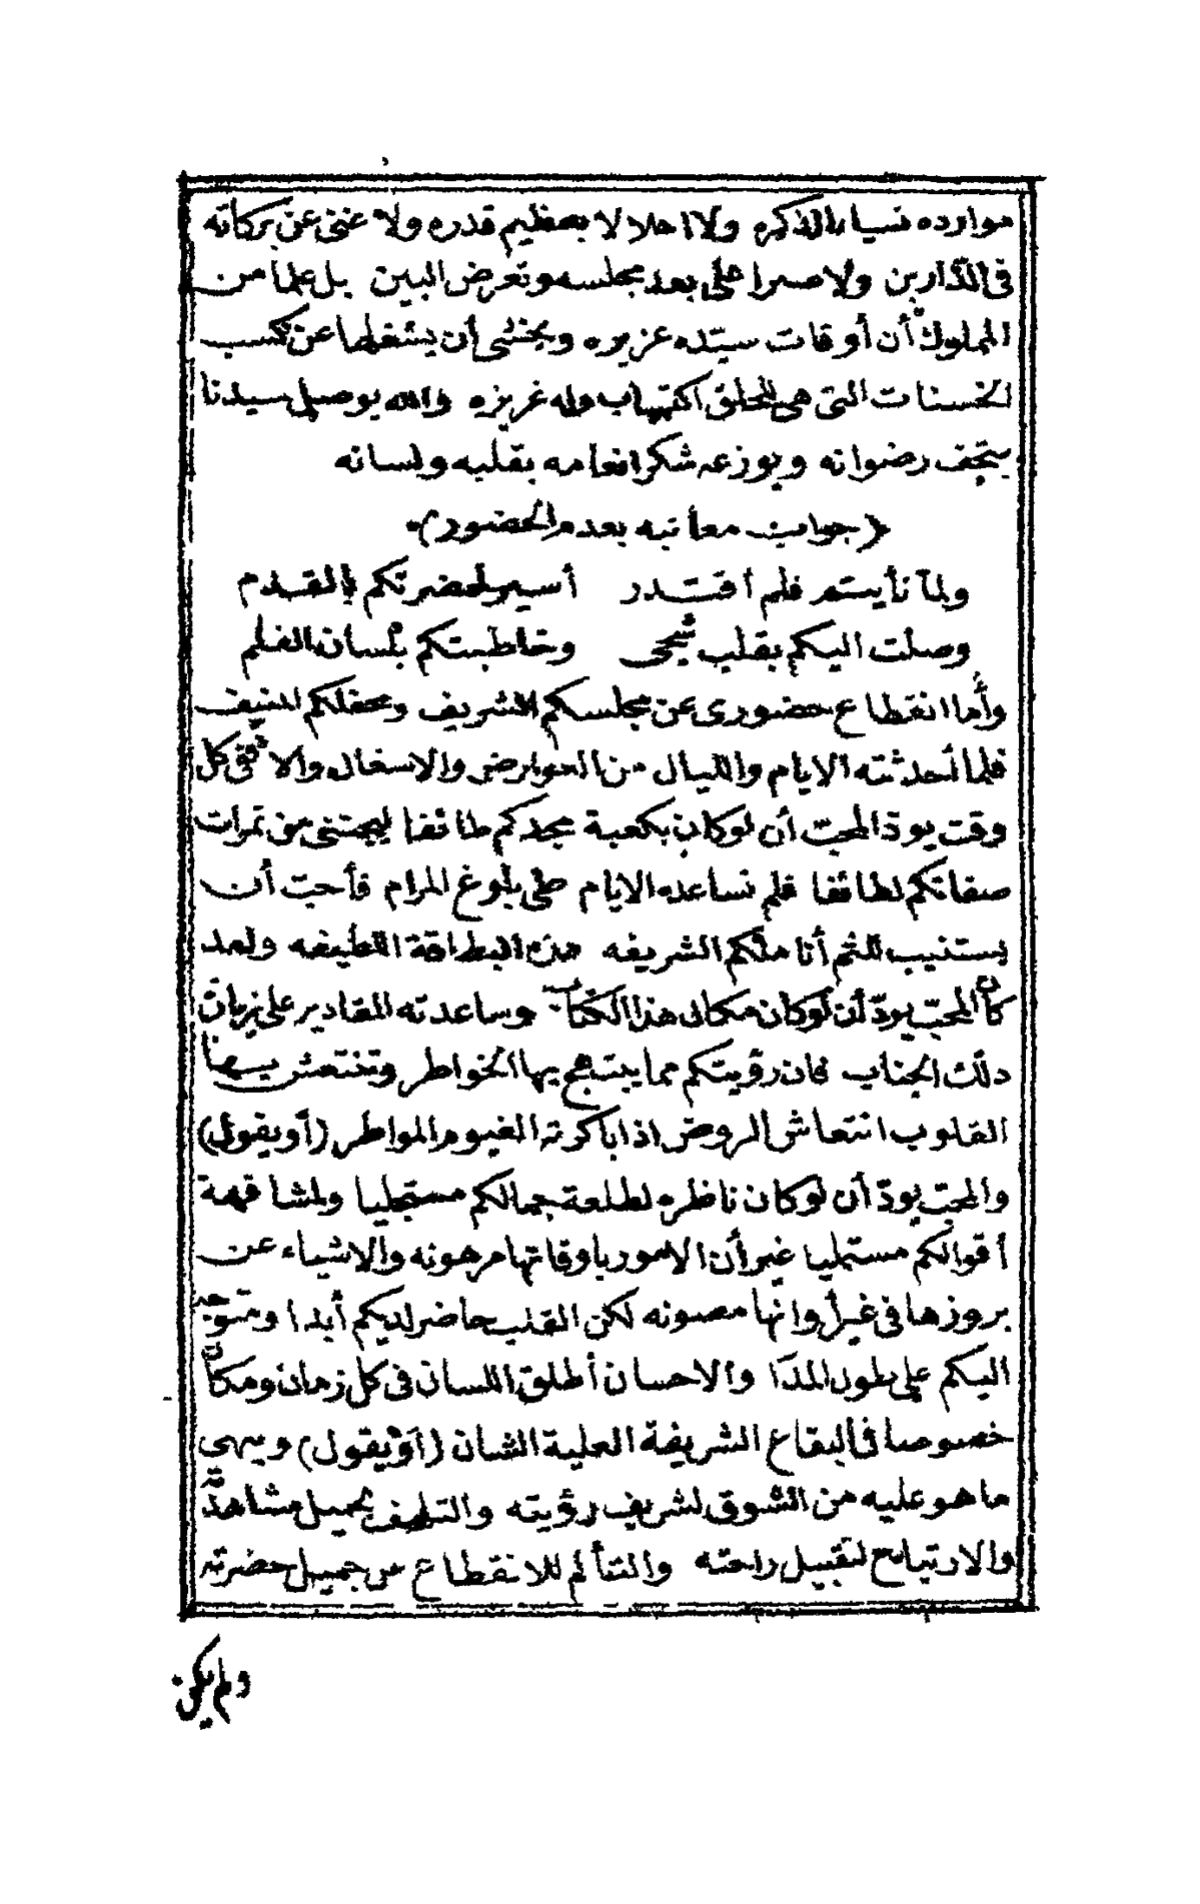 موارده نسيانا لذكره ولا اخلالا بعظيم قدره ولا غنى عن بركاته
فى الدّارين ولا صبرا على بعد مجلسه وتعرض البين بل علما من
المملوك أن أوقات سيّده عزيزه ويخشى أن يشغلها عن كسب
الحسنات التى هى للخلق اكتساب وله غريزه والله يوصل سيدنا
بتحف رضوانه ويوزعه شكر انعامه بقلبه ولسانه
(جواب معاتبه بعدم الحضور)
ولمّا نأيتم فلم أقتدر أسير لحضرتكم بالقدم
وصلت اليكم بقلب شجى وخاطبتكم بلسان القلم
وأما انقطاع حضورى عن مجلسكم الشريف ومحفلكم المنيف
فلما أحدثته الايام والليال من العوارض والاشغال والا ففى كل
وقت يودّ المحبّ أن لو كان بكعبة مجدكم طائفا ليجتنى من ثمرات
صفاتكم لطائفا فلم تساعده الايام على بلوغ المرام فأحبّ أن
يستنيب للثم أناملكم الشريفه هذه البطاقة اللطيفه ولقد
كان المحبّ يودّ أن لو كان مكان هذا الكتاب وساعدته المقادير على زيارة
ذلك الجناب فان رؤيتكم مما يبتهج بها الخواطر وتنتعش بها
القلوب انتعاش الروض اذا باكرته الغيوم المواطر (أو يقول)
والمحبّ يودّ أن لو كان ناظره لطلعة جمالكم مستجليا ولمشافهة
أقوالكم مستمليا غير أن الامور باوقاتها مرهونه والاشياء عن
بروزها فى غير أوانها مصونه لكن القلب حاضر لديكم أبدا ومتوجه
اليكم على طول المدا والاحسان أطلق اللسان فى كل زمان ومكان
خصوصا فى البقاع الشريفة العلية الشان (أو يقول) وينهى
ما هو عليه من الشوق لشريف رؤيته والتلهف لجميل مشاهدته
والارتياح لتقبيل راحته والتألم للانقطاع عن جميل حضرته
ولم يكن